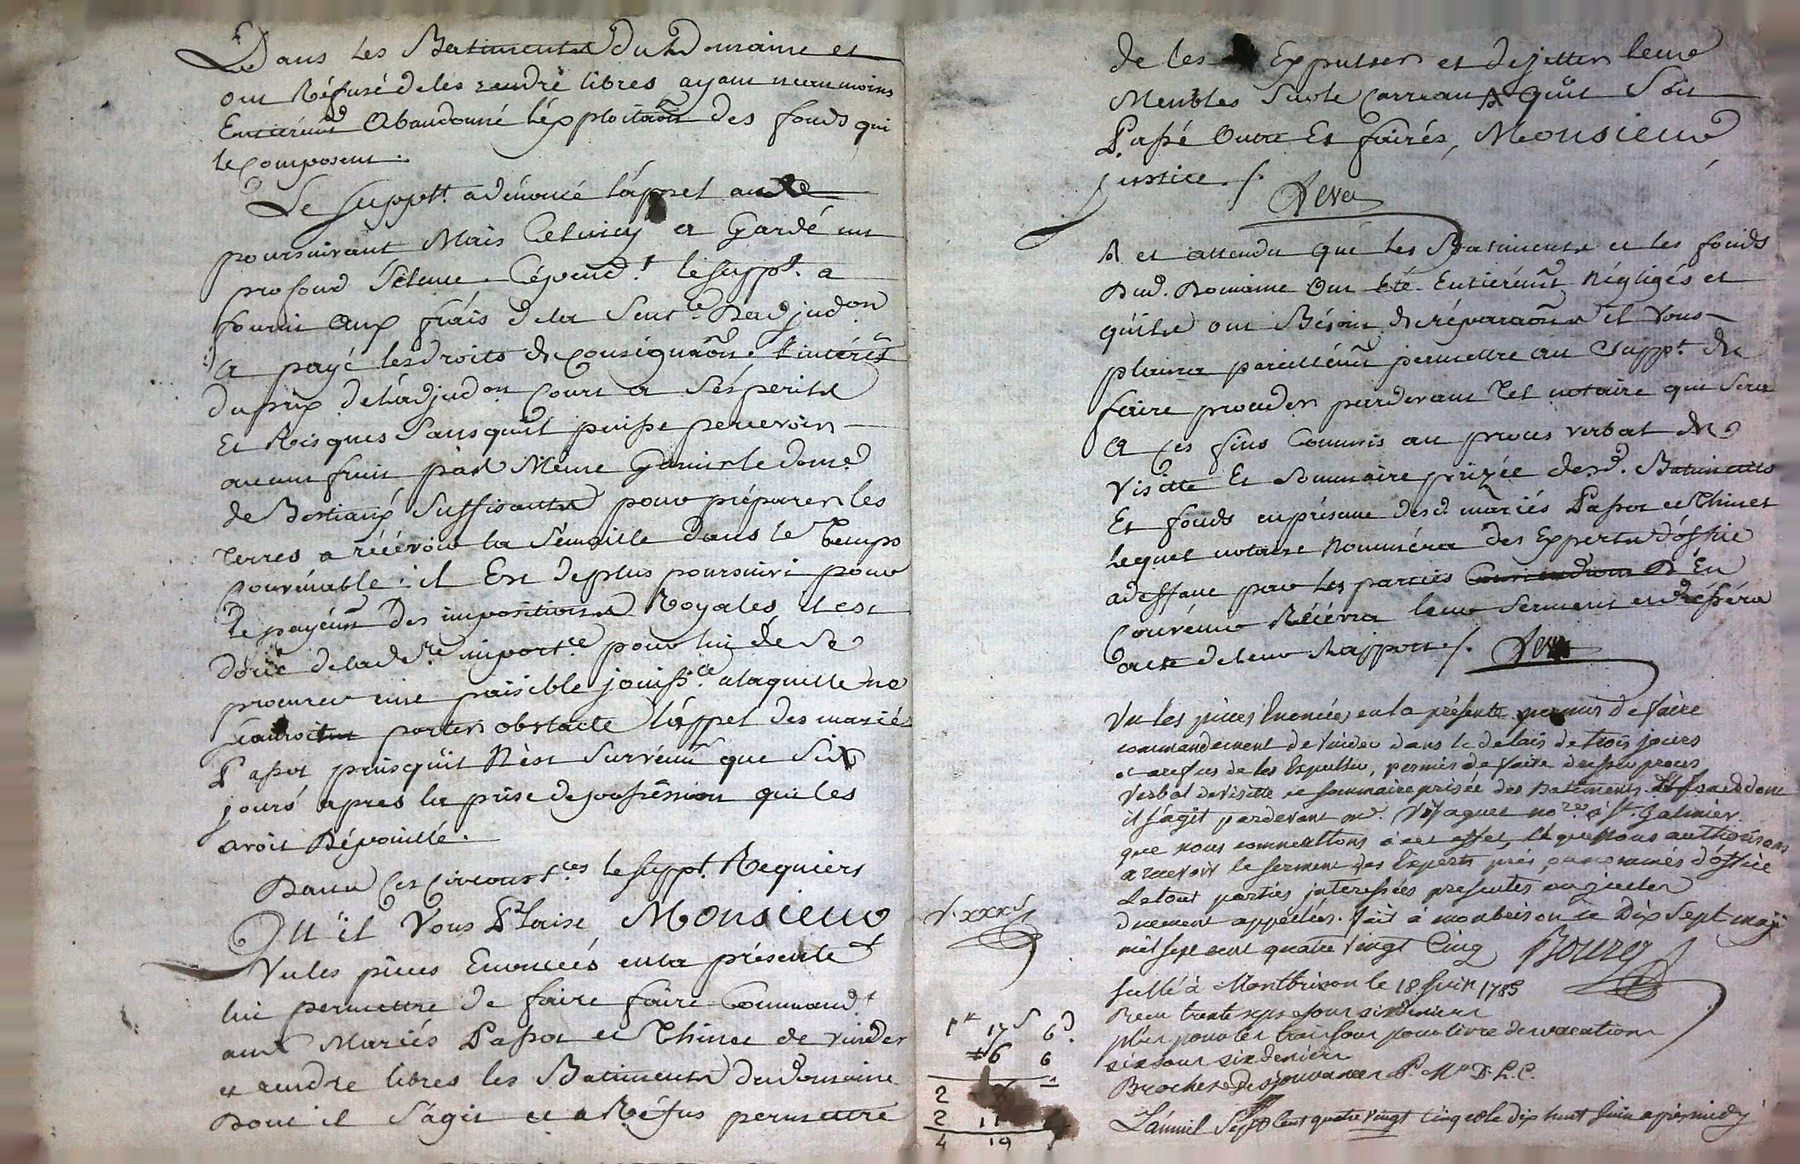 Dans les Batiments du Domaine et
ont Réfusé de les rendre libres ayant neanmoins
Entiérémt Abandonné l'éxploitaõn des fonds qui
le composent.
Le suppt. a dénoncé l'áppel au
poursuivant Mais Celuicy a Gardé un
profond Silence. Cépendt. le suppt. a
fourni aux fráis de la Sentce. D'adjudon
a payé les droits de Consignaõn. l'intérest
du prix de l'adjudon Court a Sés périls
Et Risques Sans qu'il puisse percevoir
aucun fruit pas Même Garnir le dome.
de Bestiaux Suffisants pour préparer les
terres a récévoir la Sémaille dans lé temps
convénable. il Est deplus poursuivi pour
le payémt des impositions Royales, il est
donc de la dre. importce. pour lui de Se
procurer une paisible jouissce. a laquelle ne
porter obstacle l'áppel des mariés
Passot puisqu'il N'est Survénu que Six
jours après la prise de possession qui les
avoit Dépouillé.
Dans Ces Circonstces le suppt. Requiers
Qu'il Vous Plaise Monsieur
Vu les pièces Enoncées en la présente
lui permettre de faire faire Commandt
aux Mariés Passot et Thinet de vuider
et rendre libres les Batiments du domaine
Dont il S'ágit et a Réfus permettre
de les Expulser et déjetter leurs
Meubles Sur le Carreau A qu'il Soit
Passé Outre Et fairés, Monsieur
justice ./.
A et attendu que les Batiments et les fonds
Dud. Domaine Ont été Entiérémt Négligés et
qu'ils ont Bésoin de réparaõns il Vous
plaira pareillémt permettre au Suppt. de
faire proceder pardevant tel notaire qui Sera
a ces fins Commis au procès verbal de
Visitte Et Sommaire prizée desd. Batiments
Et fonds en présence desd. mariés Passot et Thinet
lequel notaire Nommera des Experts d'office
a deffaut par les parties D'En
Convénir Récévra leur Serment et
acte de leur Rapport ./.
Vu les pièces Enoncées en la présente permis de faire
commandement de Vuider dans le delais de trois jours
et a refus de les Expulser, permis de faire dresser procès
Verbal de Visitte et sommaire prisée des Batiments et fonds dont
il s'agit pardevant me. Voÿaguet nore. a St. Galmier.
que nous commettons a cet effet, le quel nous authorisons
a recevoir le serment des Experts pris ou nommés d'office
le tout parties interessées presentes ou
duement appellées. fait a montbrison ce Dix Sept
mil sept cent quatre Vingt Cinq Bourg
scellé à Montbrison le 18 Juin 1785
Reçu trente sept sous six deniers
plus pour les trois sous pour livre de vacations
six sous six deniers
L'an mil Sept Cent quatre Vingt Cinq et le dix huit Juin après midy
V. xxx s
1 17 s 6 d
6 6
2
2 11
4 19